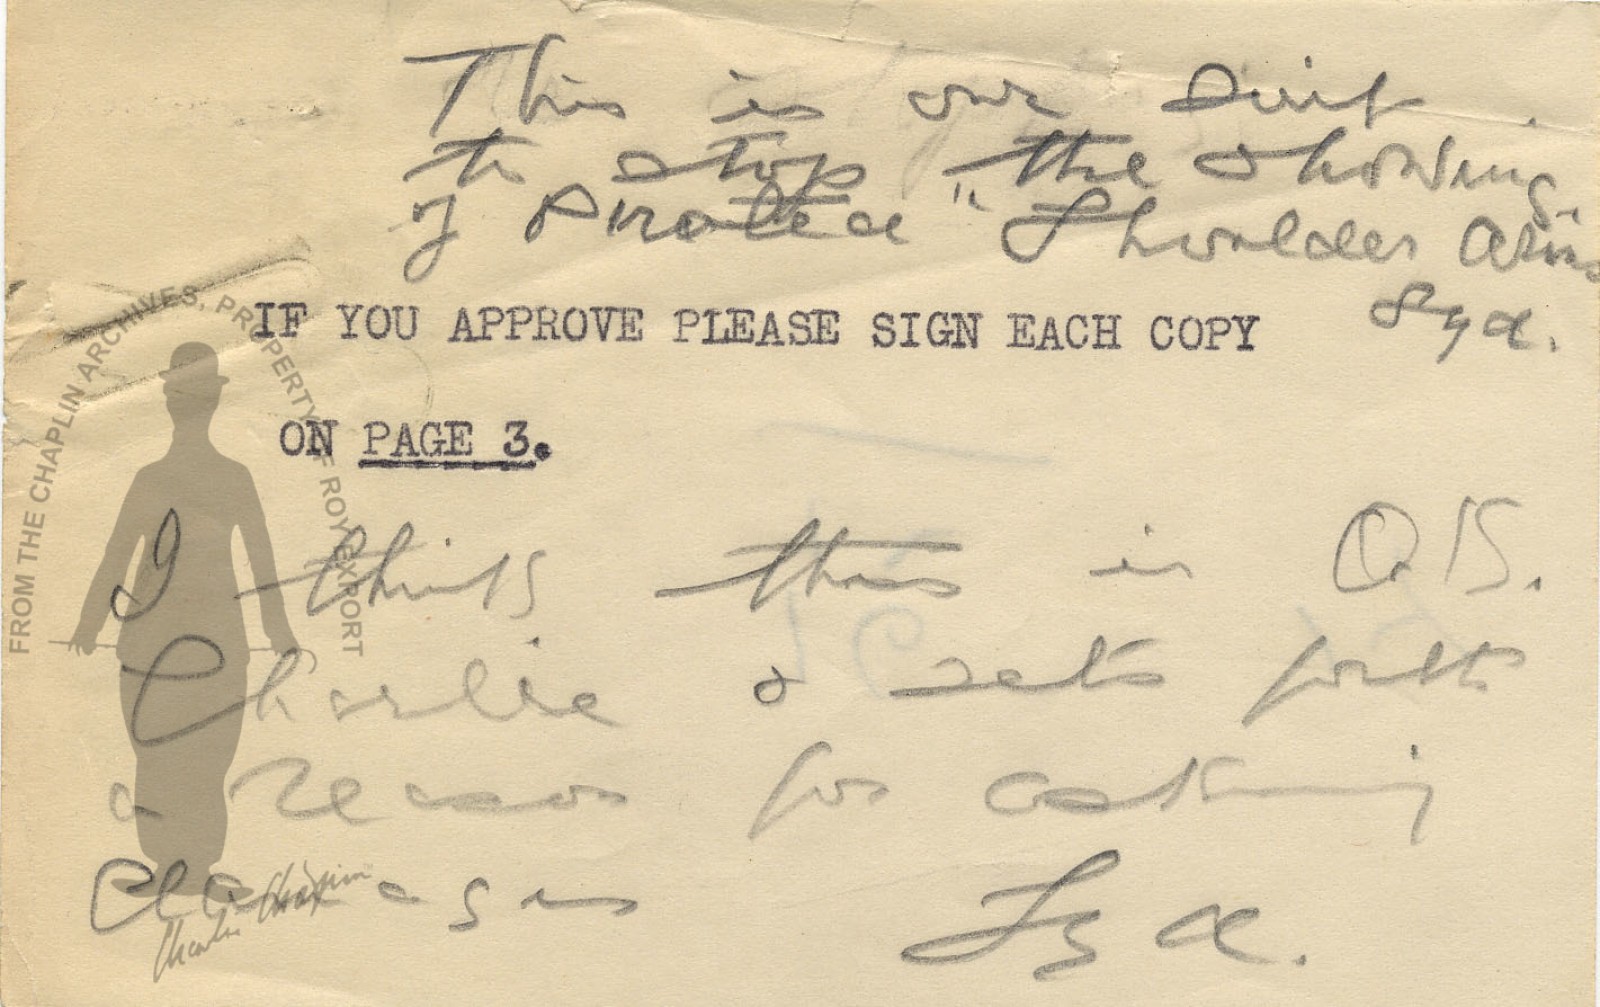 This is our Suit
to stop the showing
of Pirated "Shoulder Arms
Syd.
IF YOU APPROVE PLEASE SIGN EACH COPY
ON PAGE 3.
I think this is O.K.
Charlie & sets forth
a reason for asking
Syd.
FROM THE CHAPLIN ARCHIVES, PROPERTY OF ROY EXPORT
Charlie Chaplin